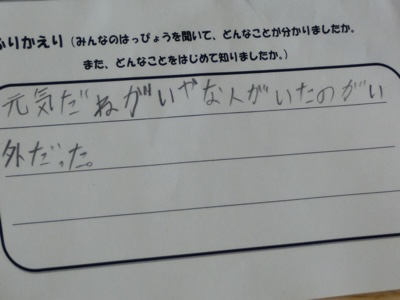 ふりかえり(みんなのはっぴょうを聞いて、どんなことが分かりましたか。
また、どんなことをはじめて知りましたか。)
元気だねがいやな人がいたのがい
外だった。